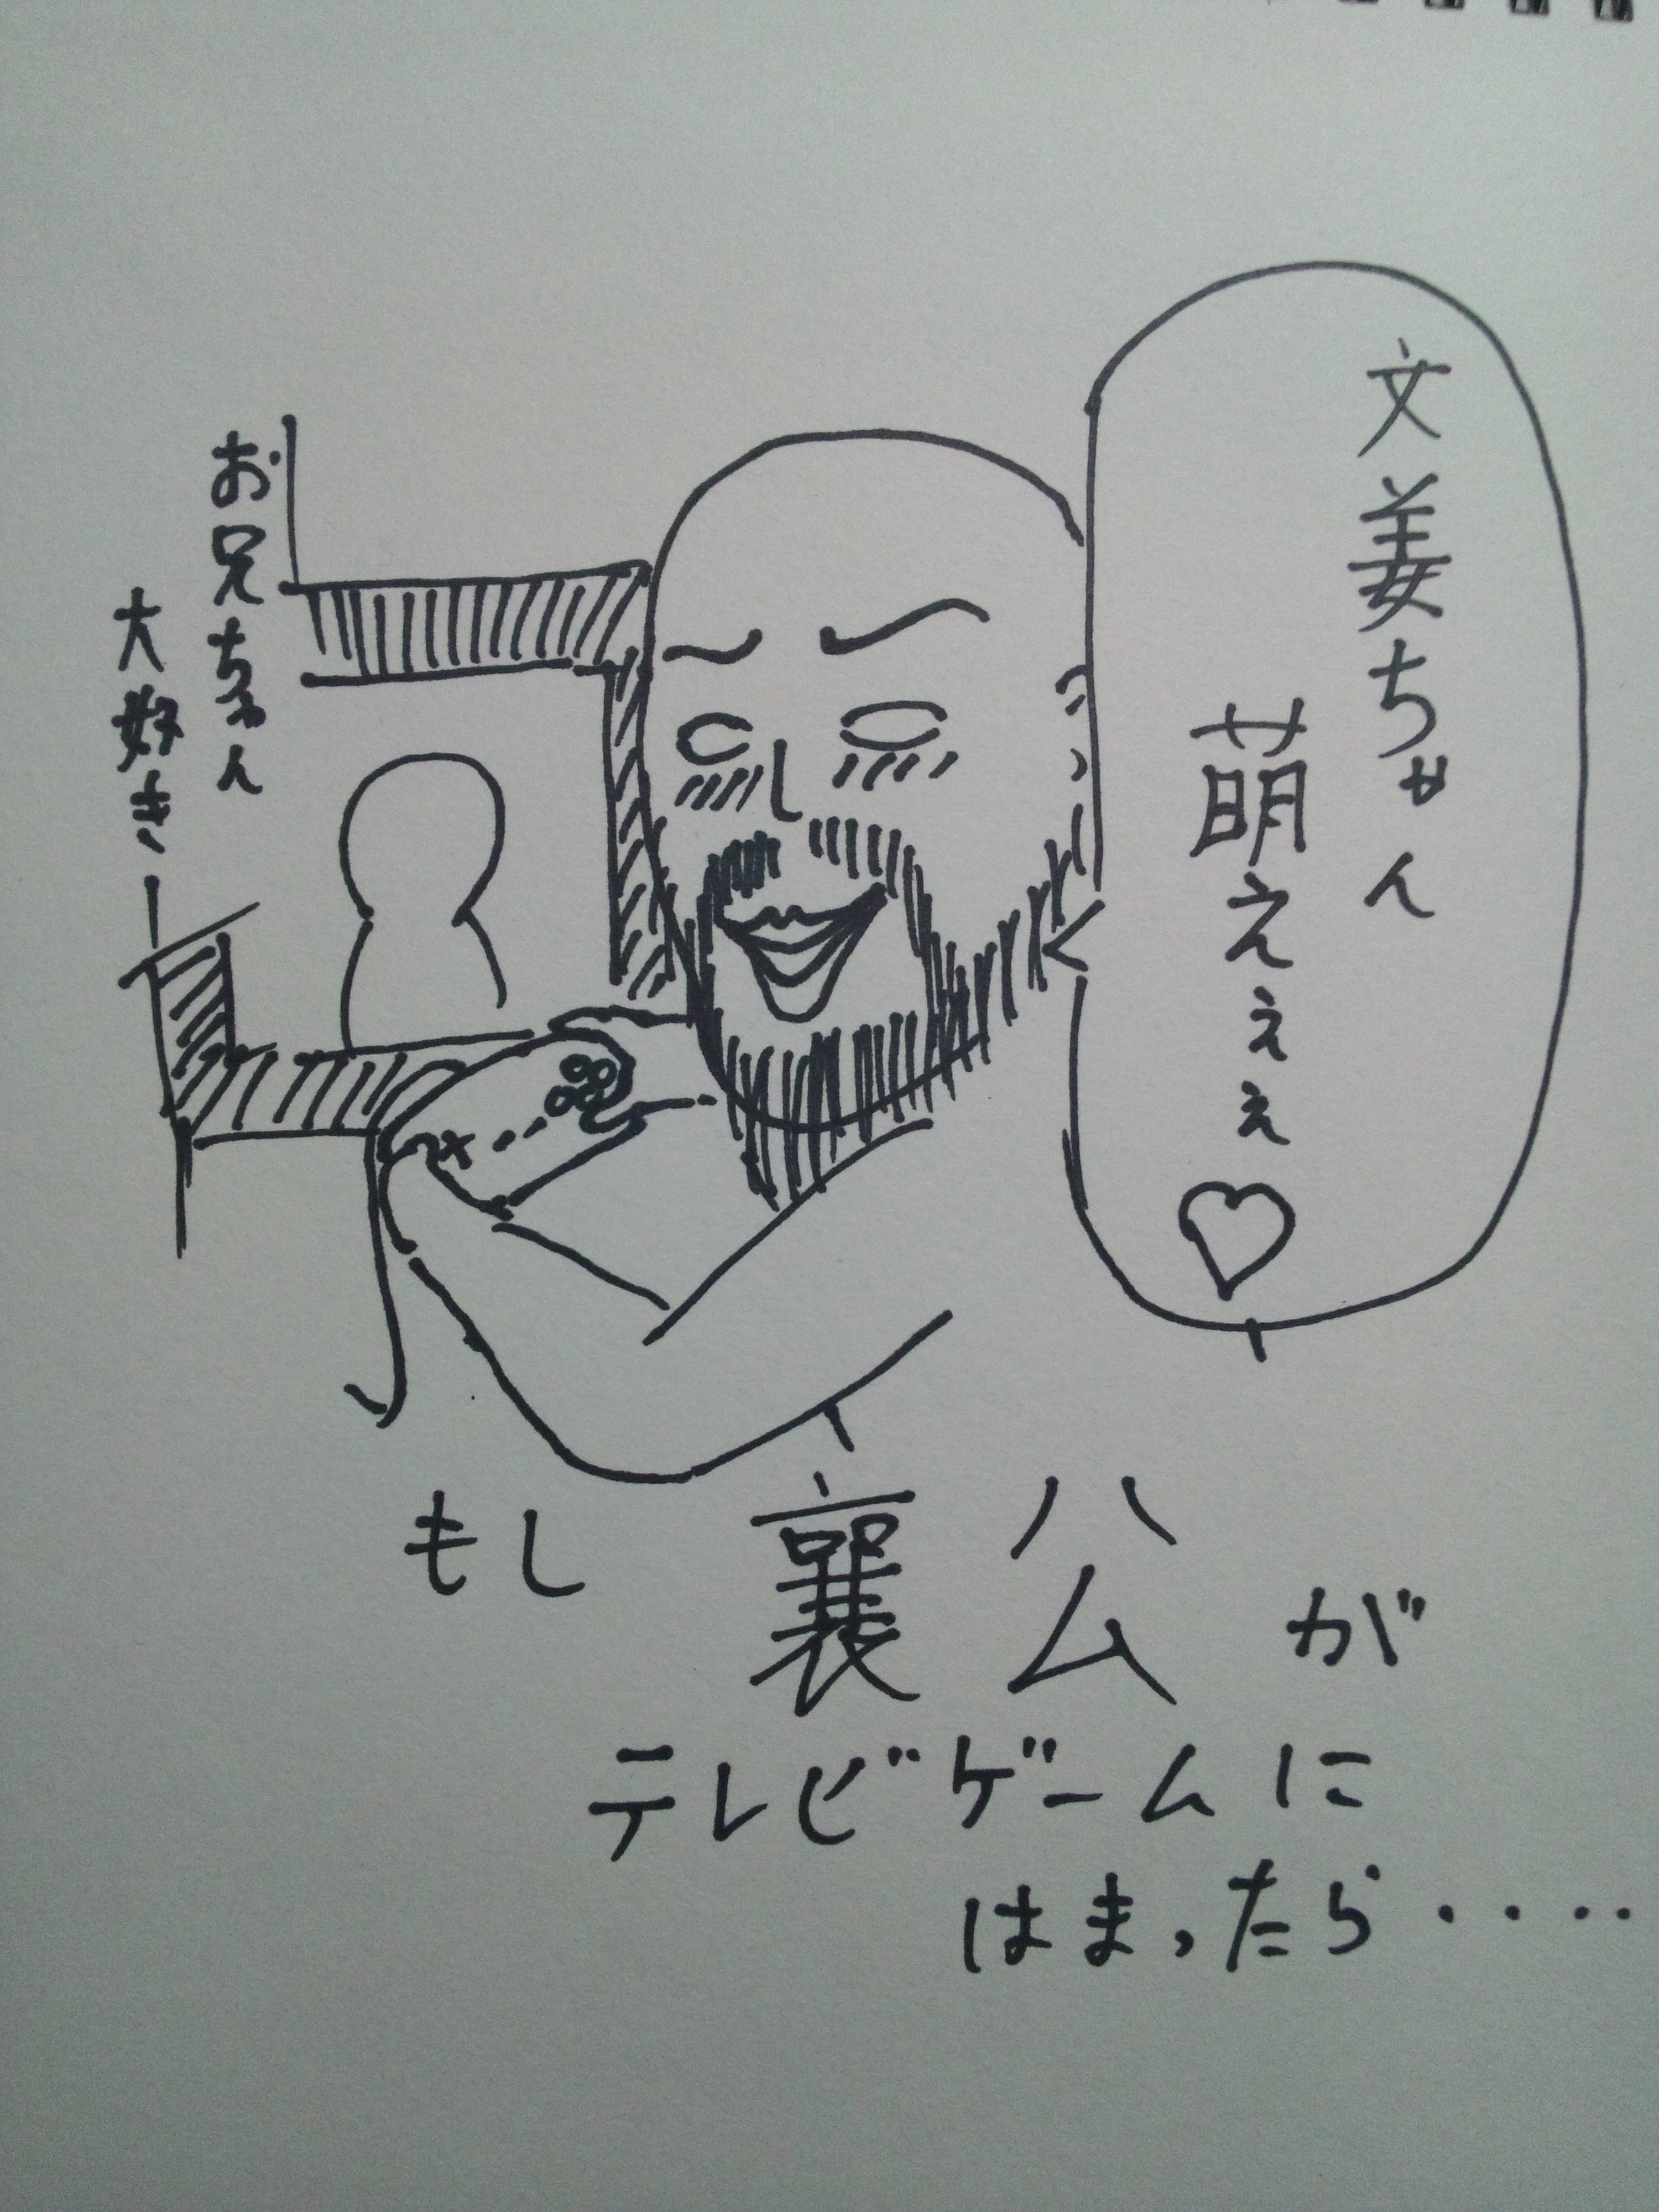 文姜ちゃん
萌えぇぇ♡
お兄ちゃん
大好きー
もし襄公が
テレビゲームに
はまったら・・・・